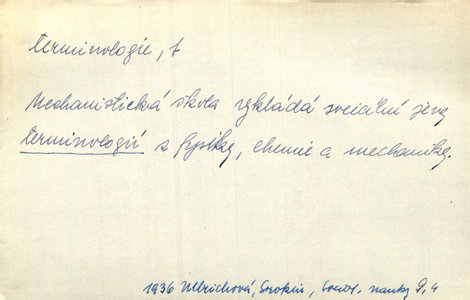 terminologie, f
Mechanistická škola vykládá sociální jevy
terminologií z fysiky, chemie a mechaniky.
1936 Ullrichová, Sorokin, Sociol. nauky P. 4